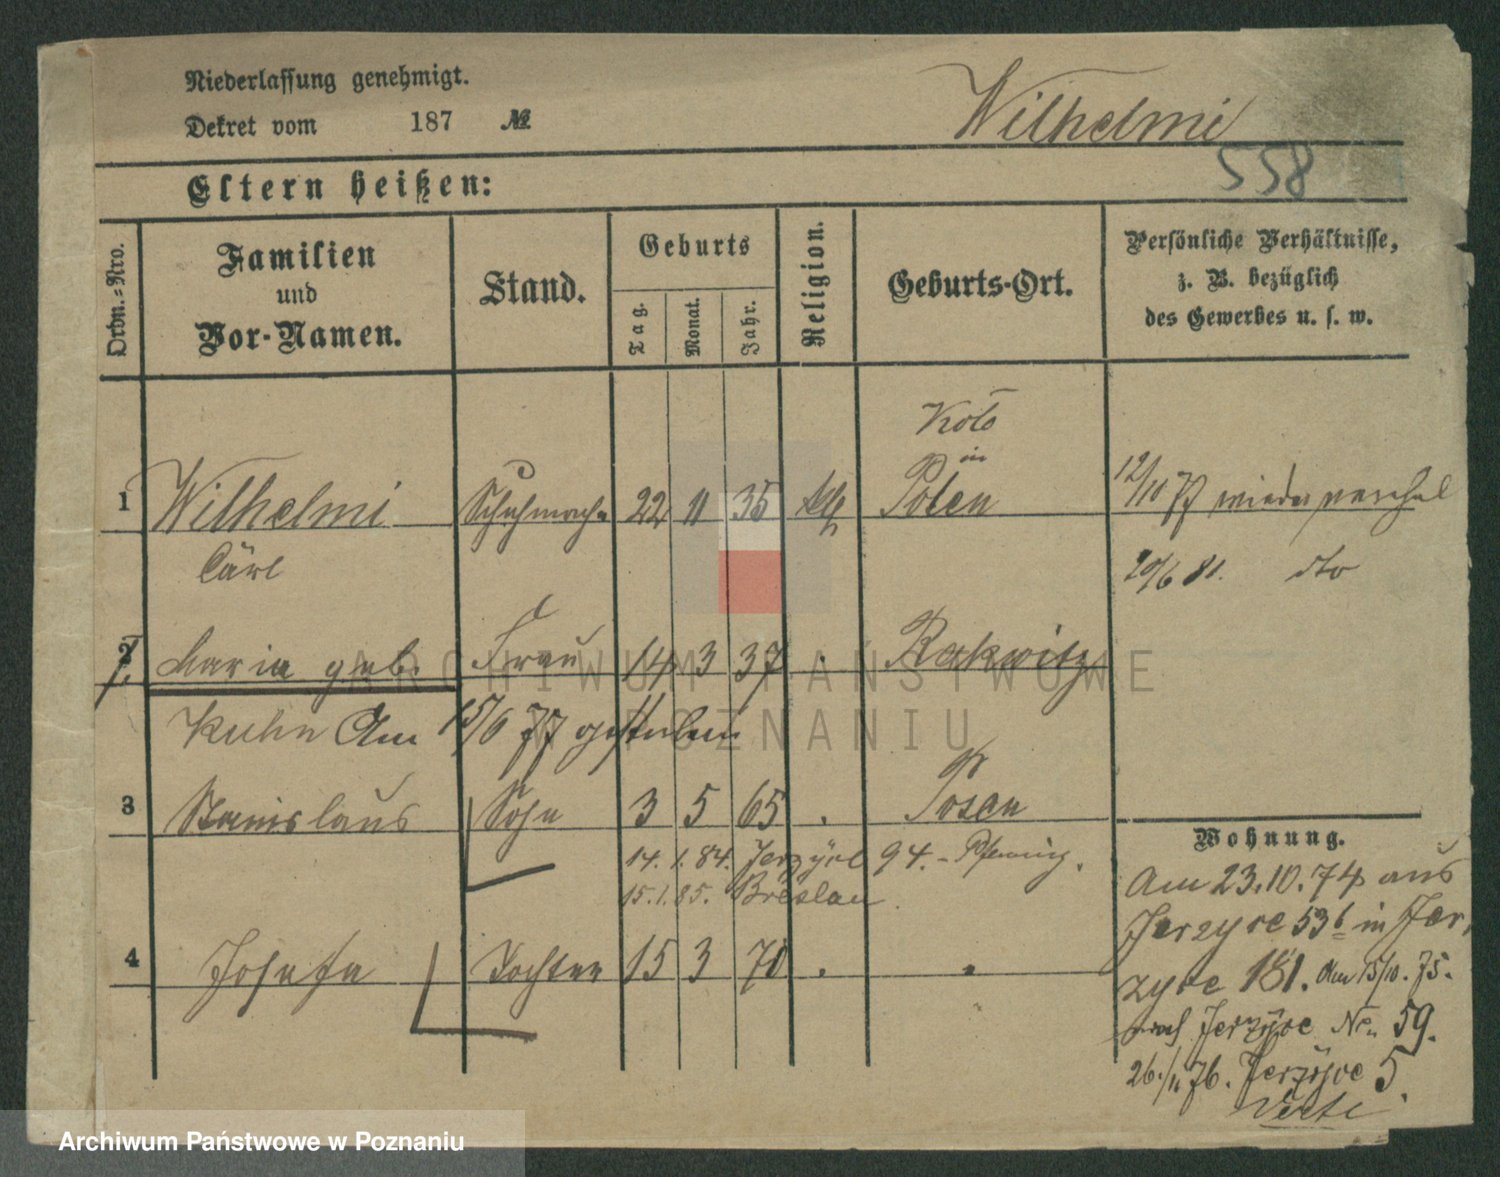 Niederlassung genehmigt.
Dekret vom 187 №
Wilhelmi
558
Eltern heißen:
Ordn.-Nro.
Familien
und
Vor-Namen.
Stand.
Geburts
Tag.
Monat.
Jahr.
Religion.
Geburts-Ort.
Persönliche Verhältnisse,
z. B. bezüglich
des Gewerbes u. s. w.
Koło
in
1 Wilhelmi Schuhmacher 22 11 35 kth Polen 12/10 77 wieder verehel
Carl 20/6 81. dto
2 Maria geb. Frau 14 3 37 . Rakwitz
Kuhn Am 15/6 77 gestorben
3 Stanislaus Sohn 3 5 65 . Posen
14. 1. 84. Jerzyce 94. - Pfennig.
15. 1. 85. Breslau.
4 Josefa Tochter 15 3 70 . .
Wohnung.
Am 23.10.74 aus
Jerzyce 53b in Jer,
zyce 181. Am 15/10. 75.
nach Jerzyce No. 59.
26./11 76. Jerzyce 5.
Verte
ARCHIWUM PAŃSTWOWE
W POZNANIU
Archiwum Państwowe w Poznaniu